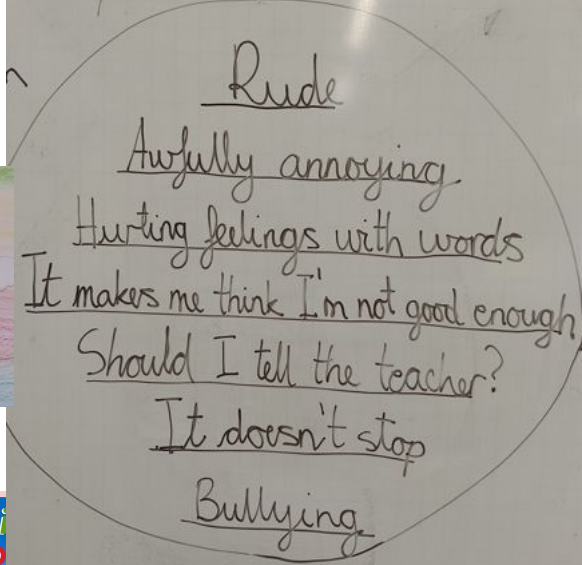 Rude
Awfully annoying
Hurting feelings with words
It makes me think I'm not good enough
Should I tell the teacher?
It doesn't stop
Bullying